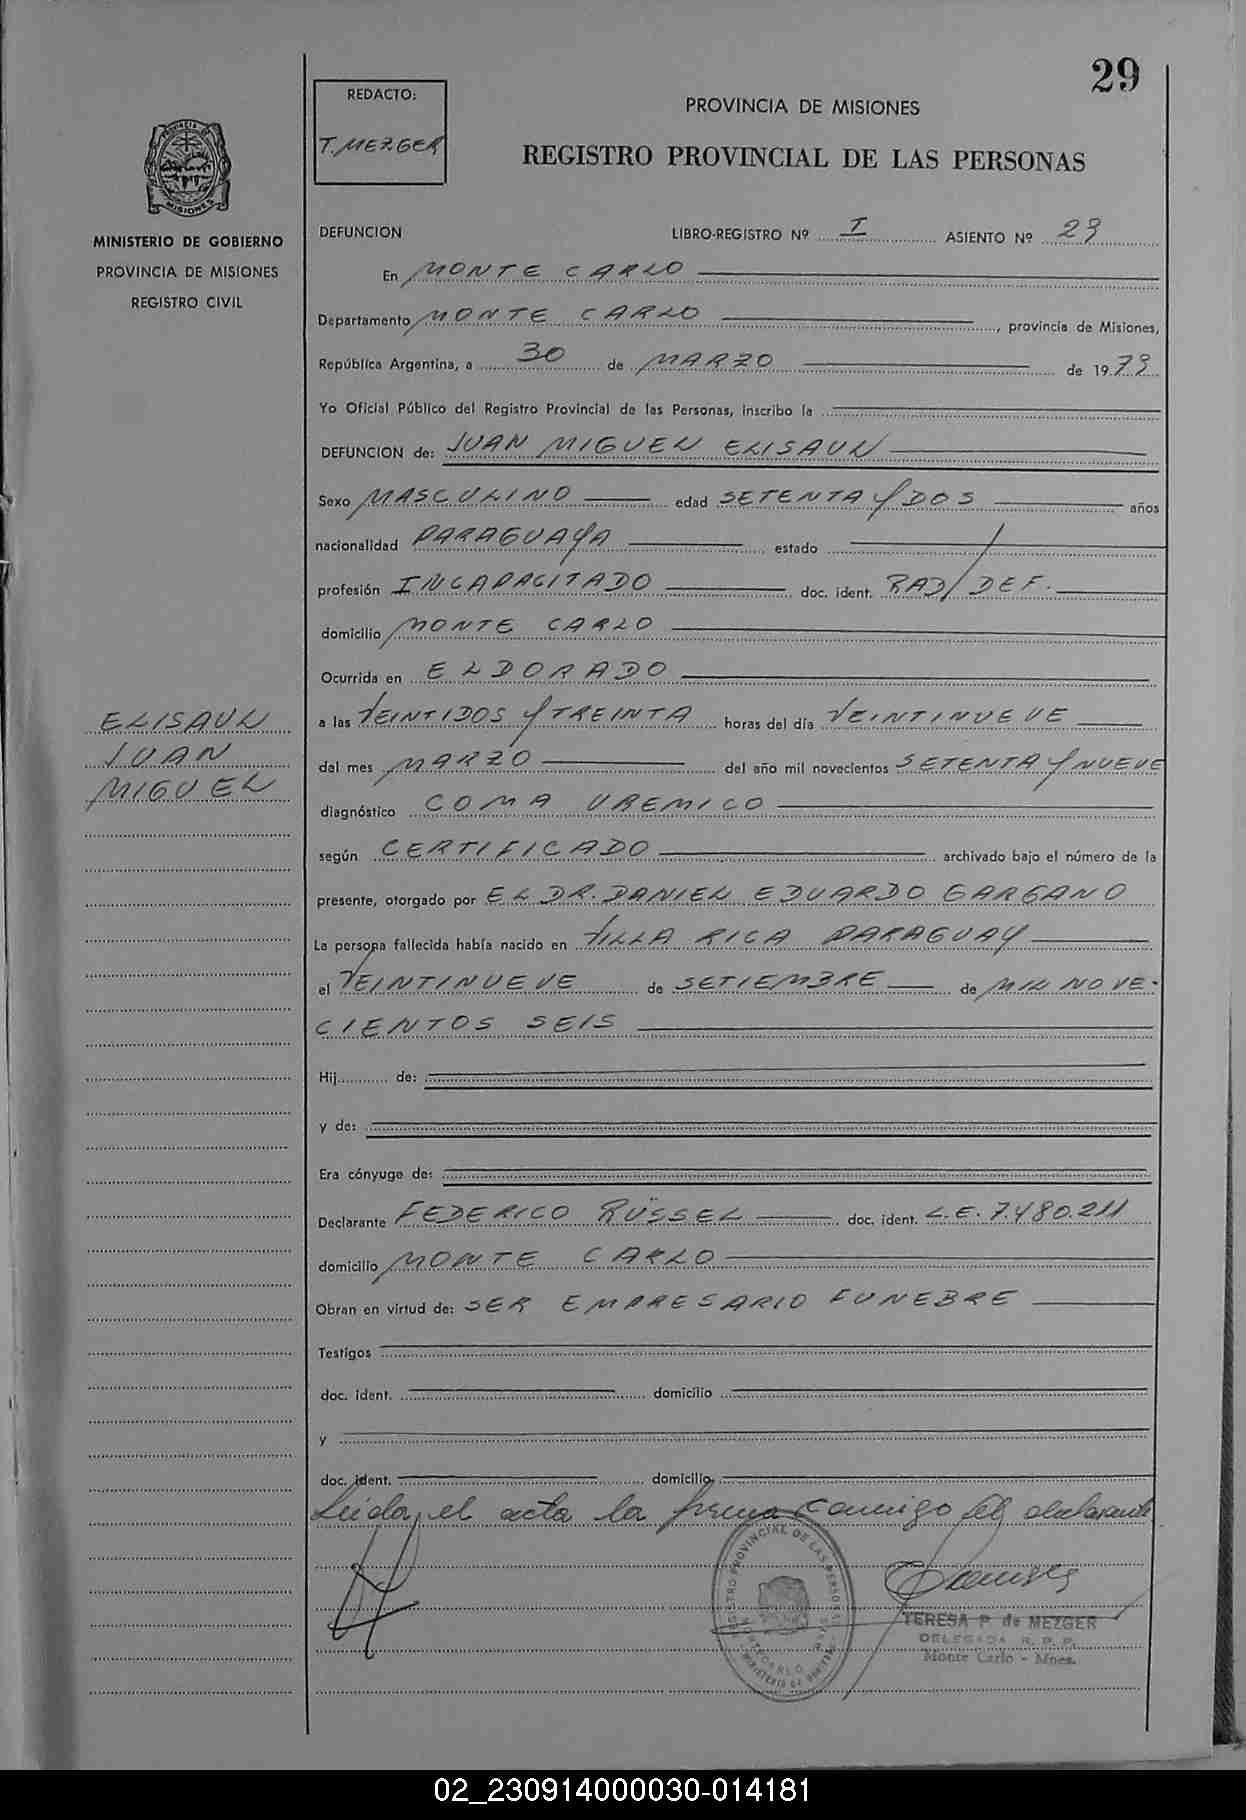 29
REDACTO:
T. MEZGER
PROVINCIA DE MISIONES
REGISTRO PROVINCIAL DE LAS PERSONAS
PROVINCIA DE
MISIONES
MINISTERIO DE GOBIERNO
PROVINCIA DE MISIONES
REGISTRO CIVIL
DEFUNCION LIBRO-REGISTRO Nº I ASIENTO Nº 29
En MONTE CARLO
Departamento MONTE CARLO, provincia de Misiones,
República Argentina, a 30 de MARZO de 1979
Yo Oficial Público del Registro Provincial de las Personas, inscribo la
DEFUNCION de: JUAN MIGUEL ELISAUL
Sexo MASCULINO edad SETENTA Y DOS años
nacionalidad PARAGUAYA estado
profesión INCAPACITADO doc. ident. RAD/DEF.
domicilio MONTE CARLO
Ocurrida en ELDORADO
ELISAUL
JUAN
MIGUEL
a las VEINTIDOS Y TREINTA horas del día VEINTINUEVE
del mes MARZO del año mil novecientos SETENTA Y NUEVE
diagnóstico COMA UREMICO
según CERTIFICADO archivado bajo el número de la
presente, otorgado por EL DR. DANIEL EDUARDO GARGANO
La persona fallecida había nacido en VILLA RICA PARAGUAY
el VEINTINUEVE de SETIEMBRE de MIL NOVE-
CIENTOS SEIS
Hij de:
y de:
Era cónyuge de:
Declarante FEDERICO RÜSSEL doc. ident. L.E. 7.480.211
domicilio MONTE CARLO
Obran en virtud de: SER EMPRESARIO FUNEBRE
Testigos
doc. ident. domicilio
y
doc. ident. domicilio
Leida el acta la firma conmigo el declarante
TERESA P. de MEZGER
DELEGADA R. P. P.
Monte Carlo - Mnes.
02_230914000030-014181